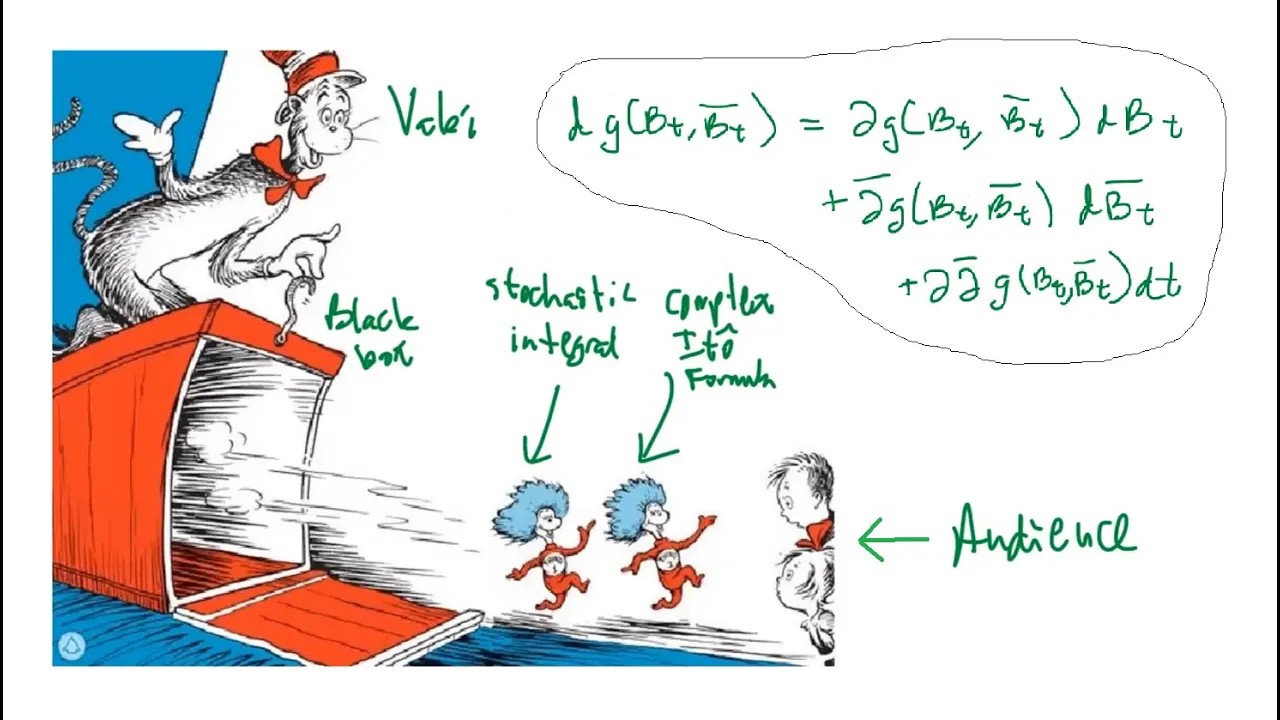 Vale's
d g(B_t, \overline{B}_t) = ∂g(B_t, \overline{B}_t) dB_t
+ \overline{∂}g(B_t, \overline{B}_t) d\overline{B}_t
+ ∂\overline{∂} g(B_t, \overline{B}_t) dt
Black
box
stochastic
integral
complex
Itô
Formula
Audience